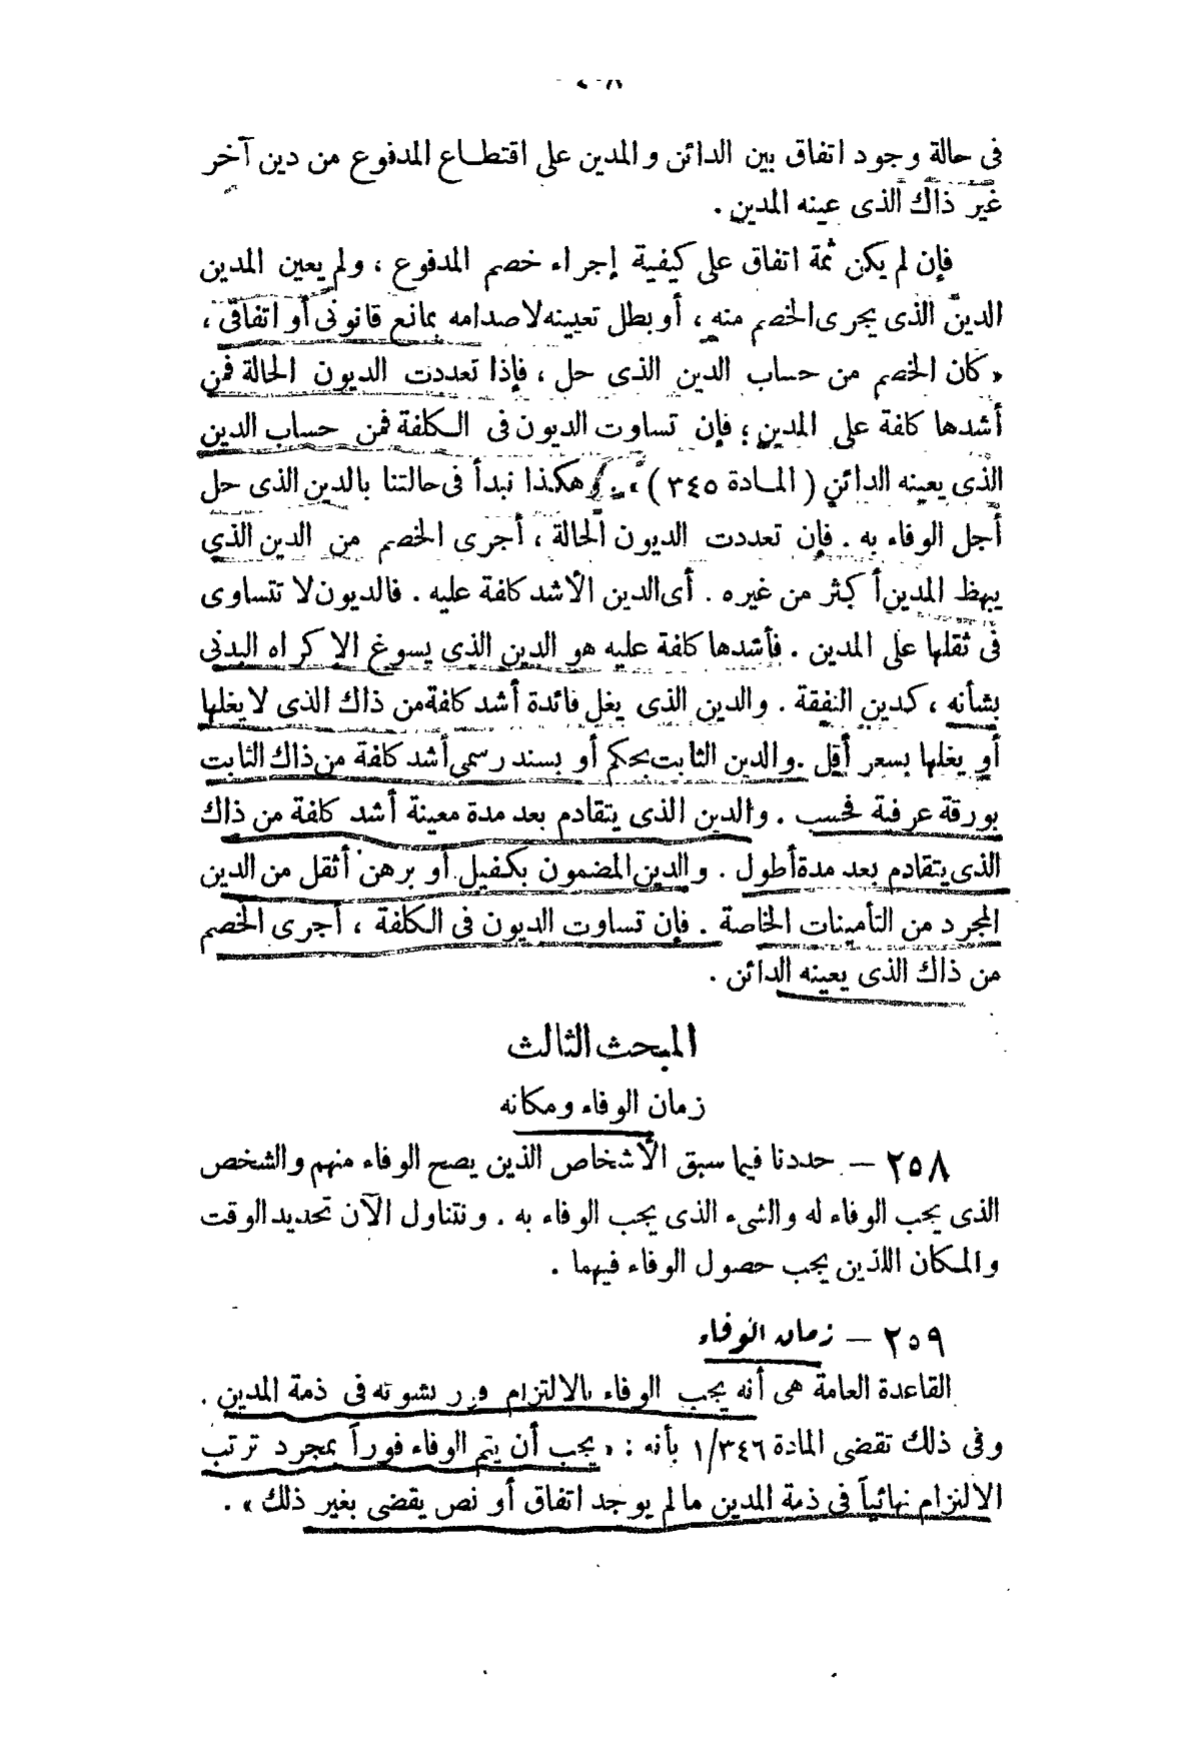 فى حالة وجود اتفاق بين الدائن والمدين على اقتطاع المدفوع من دين آخر
غير ذاك الذى عينه المدين .
فإن لم يكن ثمة اتفاق على كيفية إجراء خصم المدفوع ، ولم يعين المدين
الدين الذى يجرى الخصم منه ، أو بطل تعيينه لاصدامه بمانع قانونى أو اتفاقى ،
« كان الخصم من حساب الدين الذى حل ، فإذا تعددت الديون الحالة فمن
أشدها كلفة على المدين ؛ فإن تساوت الديون فى الكلفة فمن حساب الدين
الذى يعينه الدائن ( المادة ٣٤٥ ) » . وهكذا نبدأ فى حالتنا بالدين الذى حل
أجل الوفاء به . فإن تعددت الديون الحالة ، أجرى الخصم من الدين الذي
يبهظ المدين أكثر من غيره . أى الدين الأشد كلفة عليه . فالديون لا تتساوى
فى ثقلها على المدين . فأشدها كلفة عليه هو الدين الذى يسوغ الاكراه البدنى
بشأنه ، كدين النفقة . والدين الذى يغل فائدة أشد كلفة من ذاك الذى لا يغلها
أو يغلها بسعر أقل . والدين الثابت بحكم أو بسند رسمى أشد كلفة من ذاك الثابت
بورقة عرفة فحسب . والدين الذى يتقادم بعد مدة معينة أشد كلفة من ذاك
الذى يتقادم بعد مدة أطول . والدين المضمون بكفيل أو برهن أثقل من الدين
المجرد من التأمينات الخاصة . فإن تساوت الديون فى الكلفة ، أجرى الخصم
من ذاك الذى يعينه الدائن .
المبحث الثالث
زمان الوفاء ومكانه
٢٥٨ – حددنا فيما سبق الأشخاص الذين يصح الوفاء منهم والشخص
الذى يجب الوفاء له والشىء الذى يجب الوفاء به . ونتناول الآن تحديد الوقت
والمكان اللذين يجب حصول الوفاء فيهما .
٢٥٩ – زمان الوفاء
القاعدة العامة هى أنه يجب الوفاء بالالتزام فور ثبوته فى ذمة المدين .
وفى ذلك تقضى المادة ١/٣٤٦ بأنه : « يجب أن يتم الوفاء فوراً بمجرد ترتب
الالتزام نهائياً فى ذمة المدين مالم يوجد اتفاق أو نص يقضى بغير ذلك » .